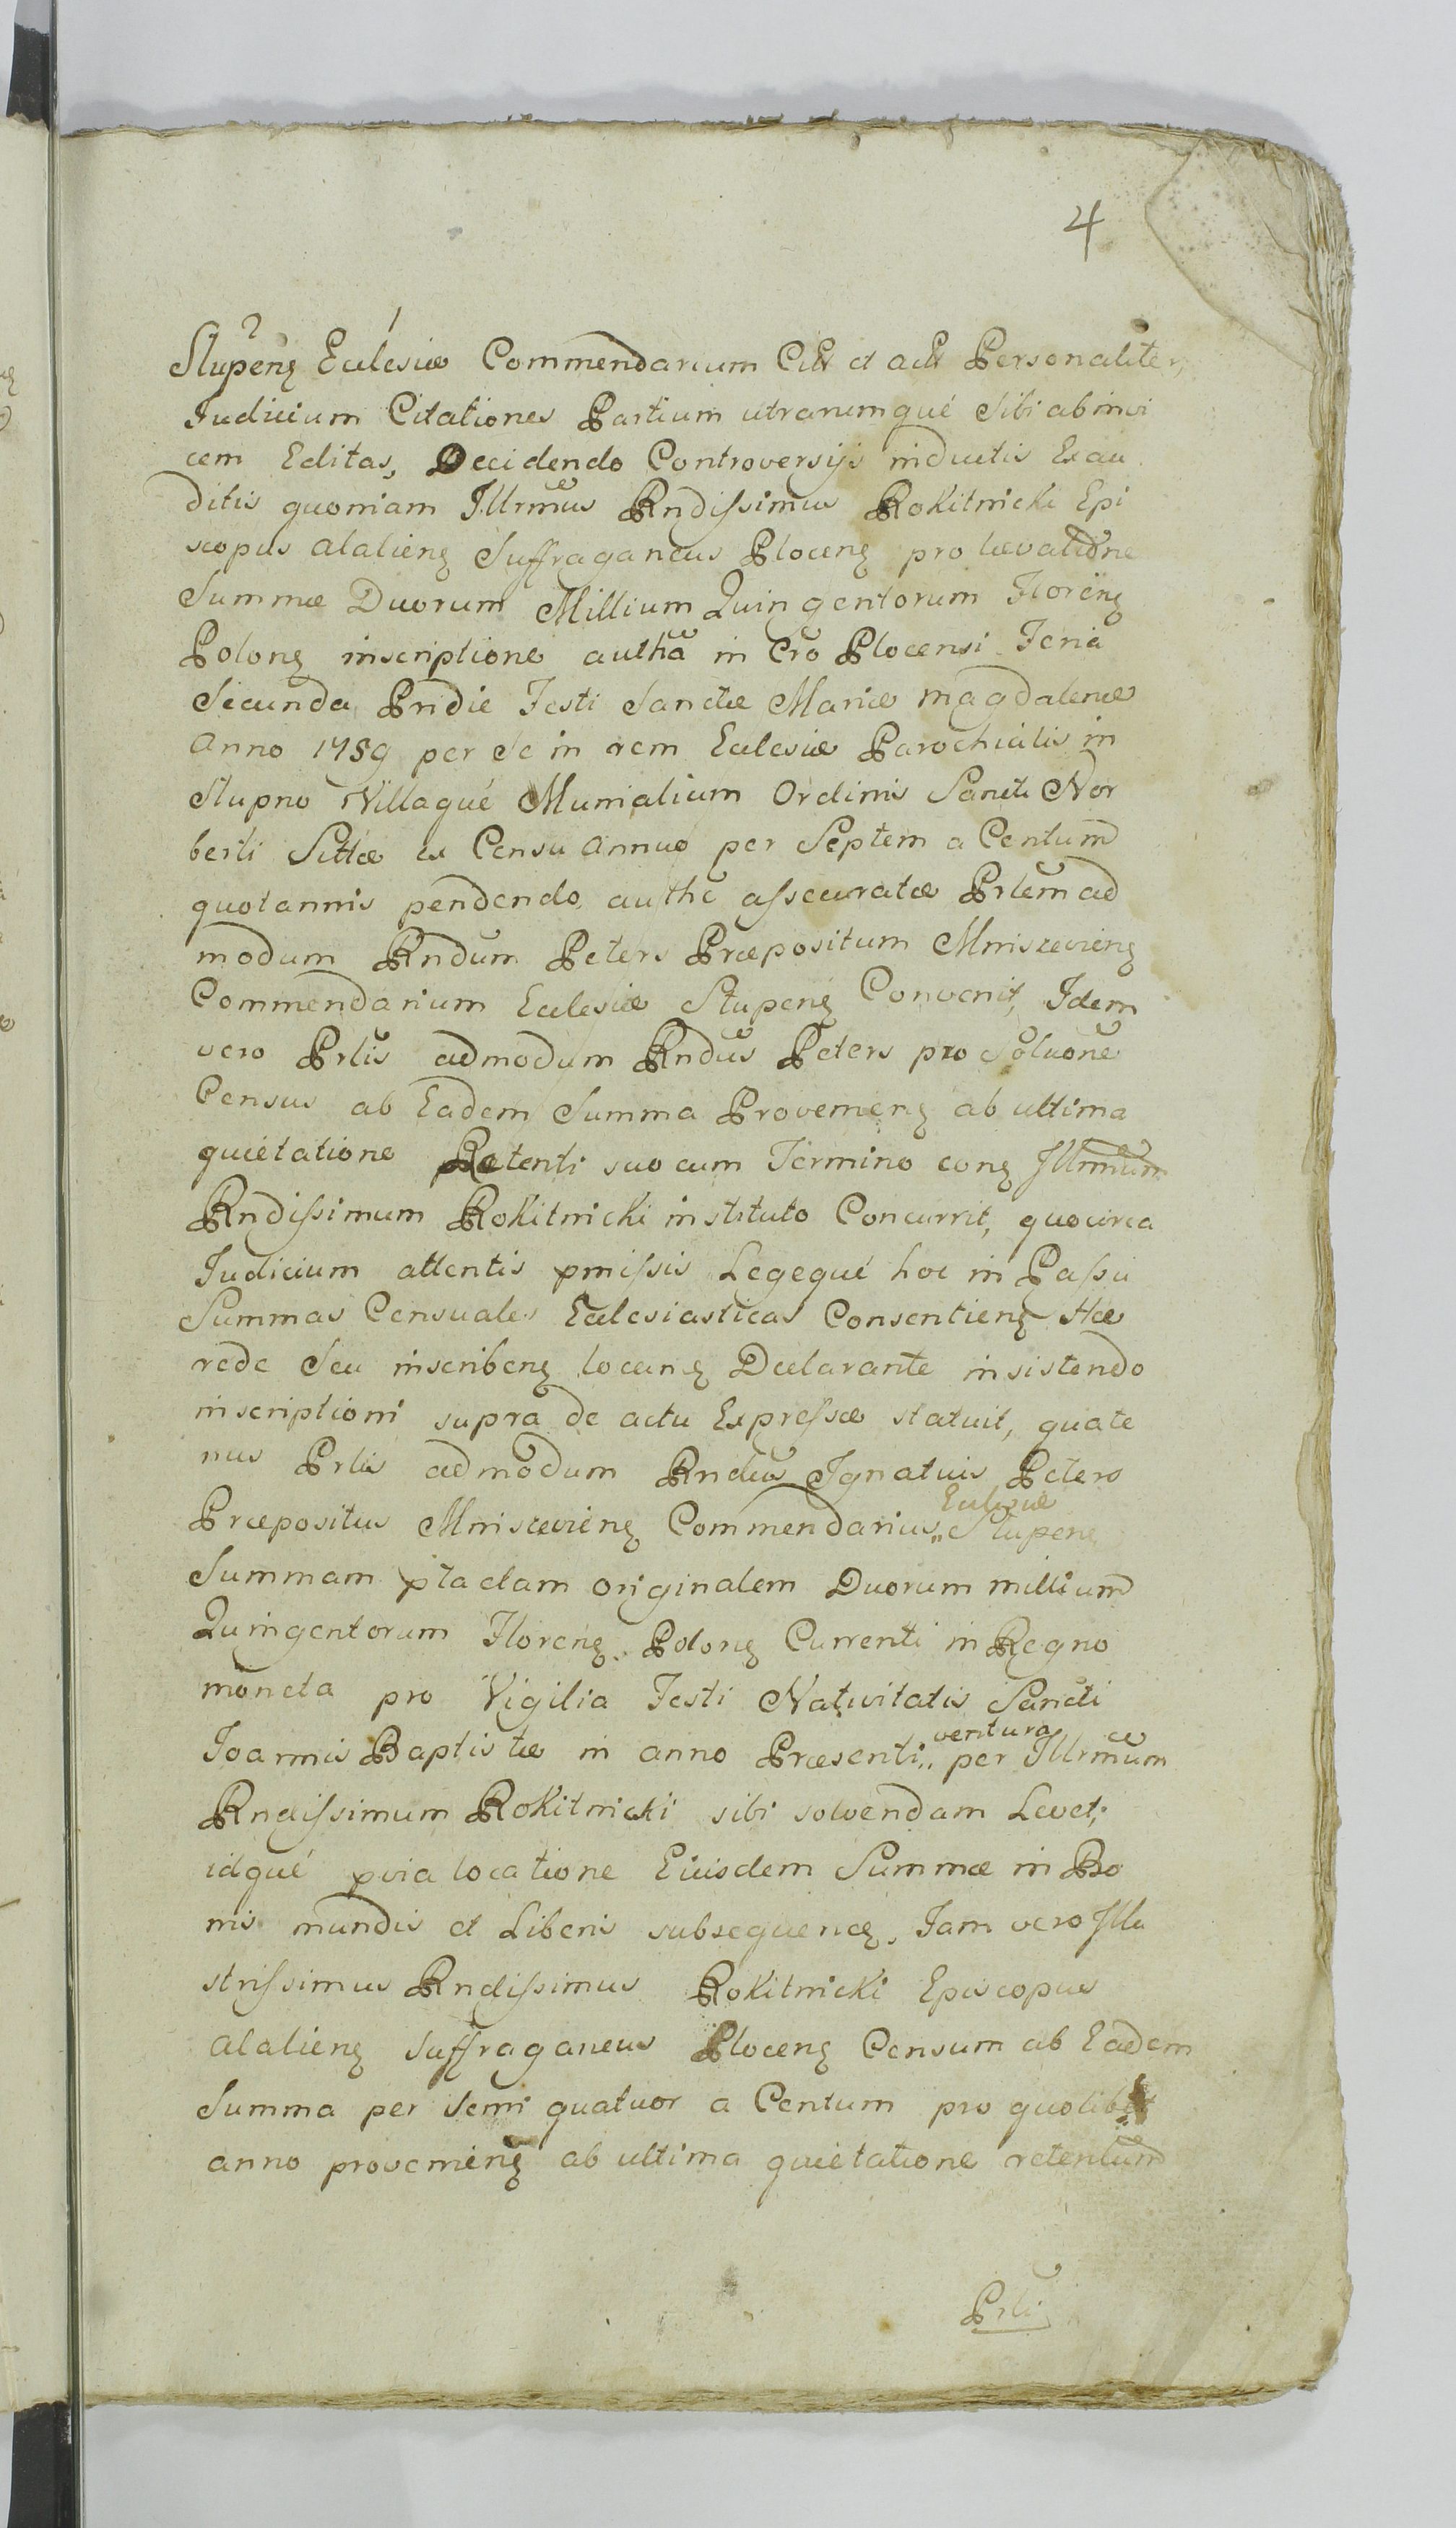 4
Stupenę Ecclesiæ Commendarium Citt et actt Personaliter,
Iudicium Citationes Partium utrarumqué sibi abinvi
cem Editas, Decidendo Controversijs inductis Exau
ditis quoniam Illrmus Rndissimus Rokitnicki Epi
scopus Alalienę Suffraganeus Plocenę pro lævatione
Summæ Duorum Millium Quingentorum Florenę
Polonę inscriptione autha in Cro Plocensi Feria
Secunda Pridie Festi Sanctæ Mariæ Magdalenæ
Anno 1759 per Se in rem Ecclesiæ Parochialis in
Stupno Villaqué Munialium Ordinis Sancti Nor
berti Sittæ ex Censu Annuo per Septem a Centum
quotannis pendendo, authe assecuratæ Prlem ad
modum Rndum Peters Præpositum Mniszevienę
Commendarium Ecclesiæ Stupenę Convenit, Idem
vero Prlis admodum Rndus Peters pro Solutione
Census ab Eadem Summa Provenienę ab ultima
quietatione Retenti suo cum Termino conę Illrmum
Rndissimum Rokitnicki instituto Concurrit, quocirca
Iudicium attentis pmissis Legequé hoc in Passu
Summas Censuales Ecclesiasticas Consentienę Hæ
rede Seu inscribenę locanę Declarante insistendo
inscriptioni supra de actu Expressæ statuit, quate
nus Prlis admodum Rndus Ignatius Peters
Præpositus Mniszevienę Commendarius „ Ecclesiæ Stupenę
Summam ptactam originalem Duorum millium
Quingentorum Florenę Polonę Currenti in Regno
moneta pro Vigilia Festi Nativitatis Sancti
Joannis Baptistæ in anno Præsenti „ ventura per Illrmum
Rndissimum Rokitnicki sibi solvendam Levet;
idqué pvia locatione Eiusdem Summæ in Bo
nis mundis et Liberis subsequenę. Iam vero Illu
strissimus Rndissimus Rokitnicki Episcopus
Alalienę Suffraganeus Plocenę Censum ab Eadem
Summa per semi quatuor a Centum pro quolibet
anno provenienę ab ultima quietatione retentum
Prli